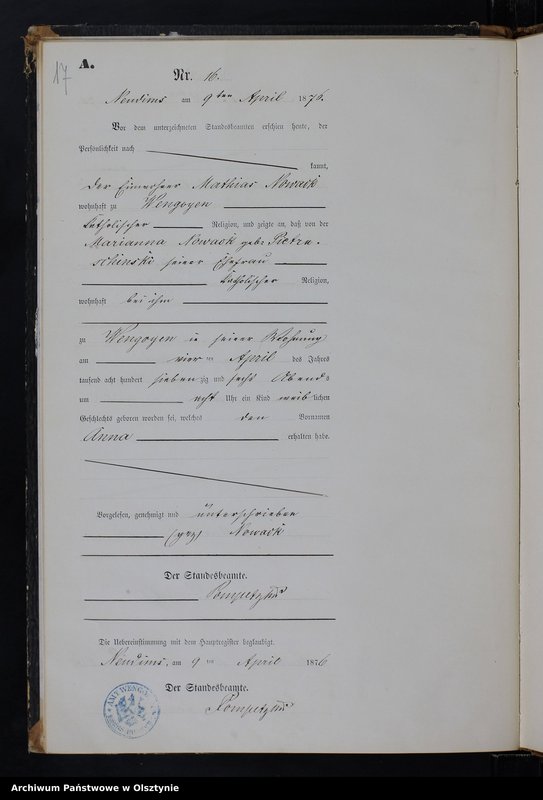 17
A.
Nr. 16.
am 9ten April 1876.
Vor dem unterzeichneten Standesbeamten erschien heute, der
Persönlichkeit nach
kannt,
der Mathias Nowack
wohnhaft zu Wengoyen
katholischer Religion, und zeigte an, daß von der
Marianna Nowack geb. Pietra-
schinski seiner Ehefrau
katholischer Religion,
wohnhaft bei ihm
zu Wengoyen in seiner Wohnung
am vier ten April des Jahres
tausend acht hundert siebenzig und sechs Abends
um acht Uhr ein Kind weiblichen
Geschlechts geboren worden sei, welches den Vornamen
Anna erhalten habe.
Vorgelesen, genehmigt und unterschrieben
(gez) Nowack
Der Standesbeamte.
Die Uebereinstimmung mit dem Hauptregister beglaubigt.
am 9 ten April 1876
Der Standesbeamte.
Archiwum Państwowe w Olsztynie